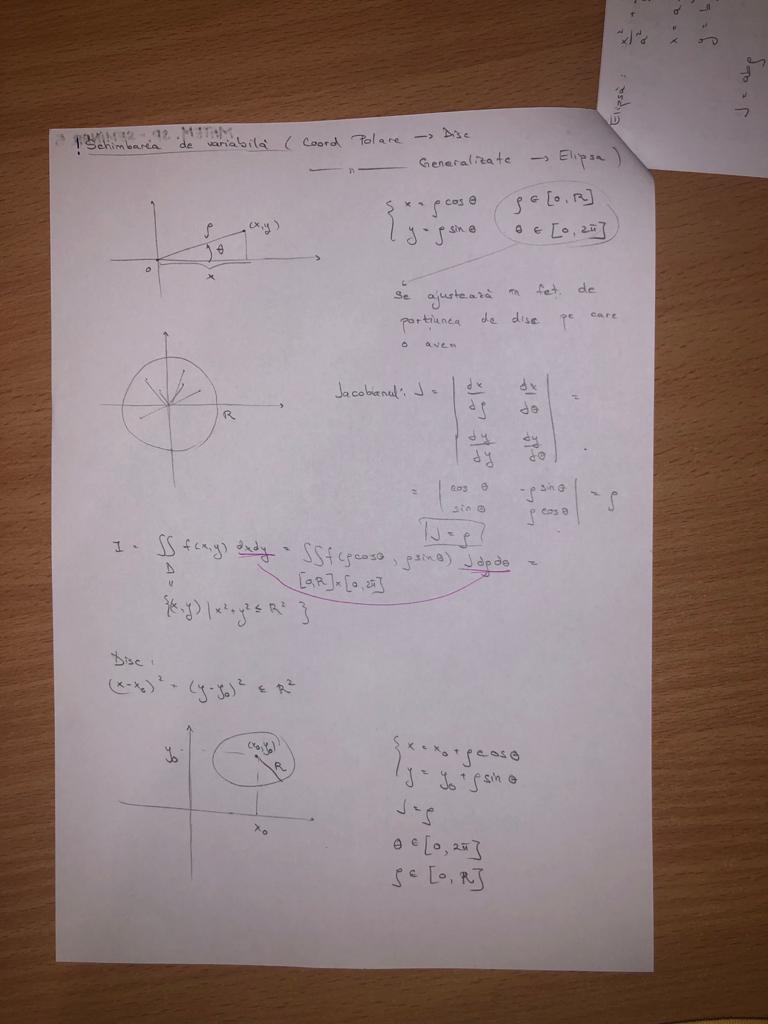 ! Schimbarea de variabilă ( Coord Polare → Disc
—— " —— Generalizate → Elipsa )
ρ
(x,y)
θ
o
x
{ x = ρ cos θ
y = ρ sin θ
ρ ∈ [0, R]
θ ∈ [0, 2π]
Se ajustează în fct. de
porțiunea de disc pe care
o avem
R
Jacobianul: J = | dx/dρ dx/dθ | =
| dy/dy dy/dθ |
= | cos θ -ρ sin θ | = ρ
| sin θ ρ cos θ |
|J = ρ
I = ∬ f(x,y) dxdy = ∬ f(ρcosθ, ρsinθ) J dρdθ =
D
[0,R]×[0,2π]
"
{(x,y) | x²+y² ≤ R² }
Disc:
(x-x₀)² = (y-y₀)² ≤ R²
y₀
(x₀,y₀)
R
x₀
{ x = x₀ + ρ cos θ
y = y₀ + ρ sin θ
J = ρ
θ ∈ [0, 2π]
ρ ∈ [0, R]
Elipsă:
x²/a² +
x = a
y = b
J = abρ